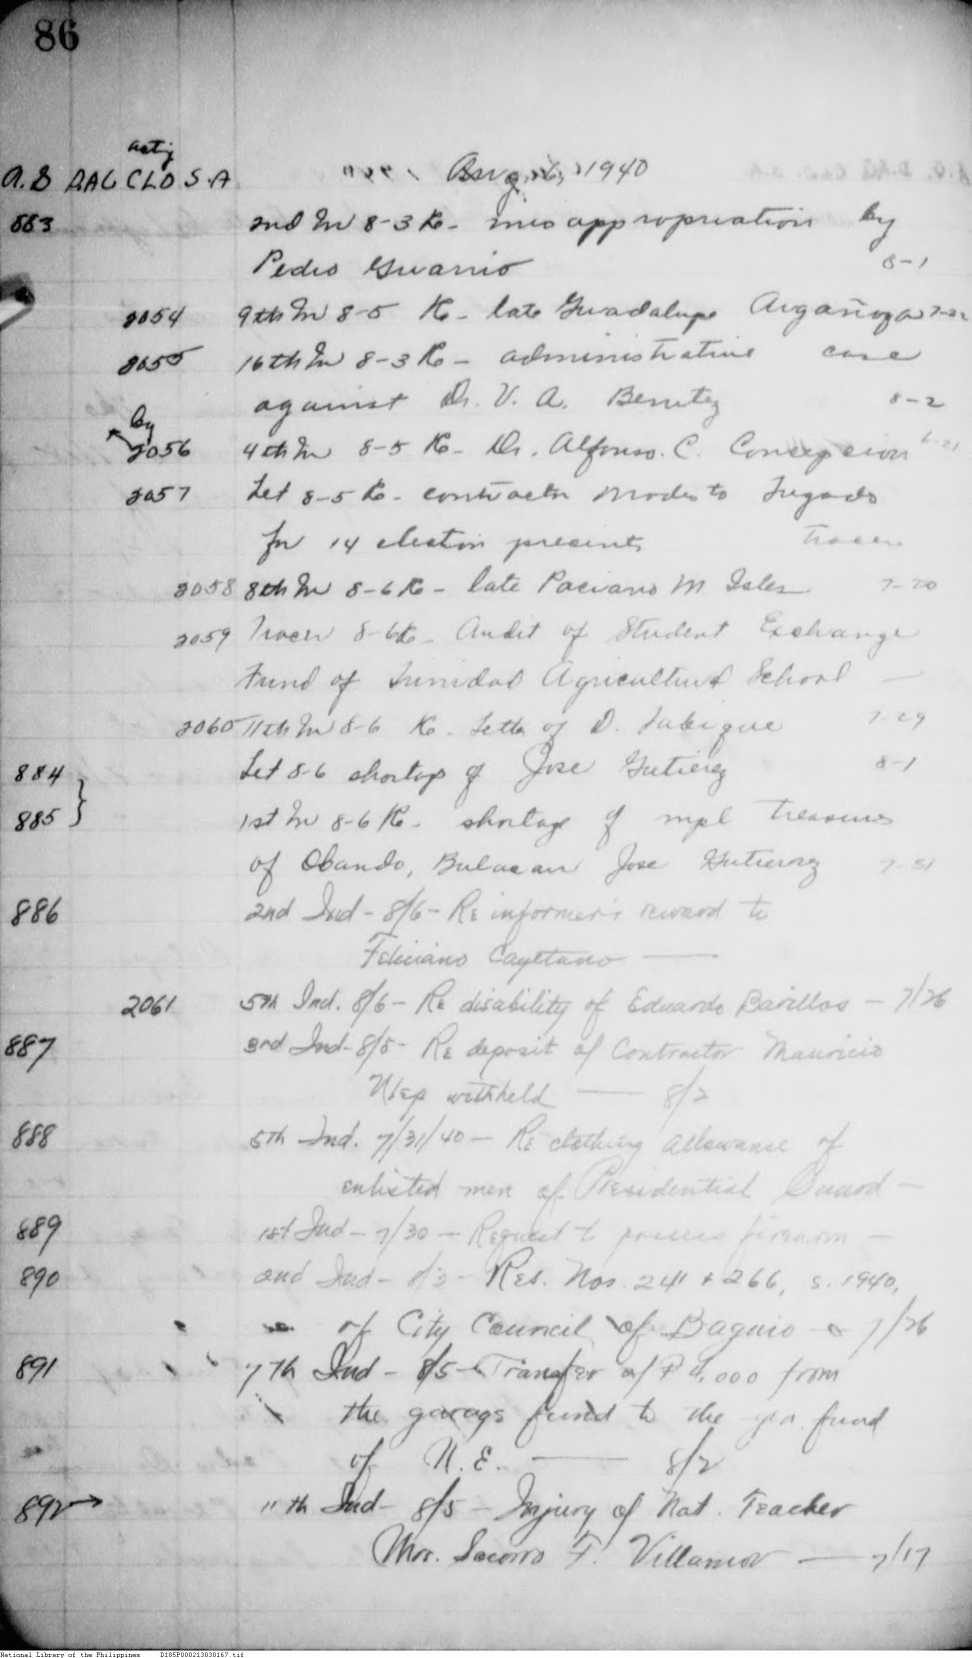 86
Actg
A.G DAG CLO S.A. Aug. 6, 1940
883 2nd In 8-3 Re- misappropriation by
Pedro Guarrio 8-1
2054 9th In 8-5 Re- late Guadalupe Argañoza 7-22
2055 16th In 8-3 Re- administrative case
against Dr. V. A. Benitez 8-2
by
2056 4th In 8-5 Re- Dr. Alfonso C. Concepcion 6-21
2057 Let 8-5 Re- contractor Modesto
for 14 election precincts tracer
2058 8th In 8-6 Re- late Paciano M. Isles 7-20
2059 Tracer 8-6 Re- Audit of Student Exchange
Fund of Trinidad Agricultural School —
2060 11th In 8-6 Re. Letter of D. 7-29
884 Let 8-6 shortage of Jose Gutierez 8-1
885 1st In 8-6 Re- shortage of mpl treasurer
of Obando, Bulacan Jose Gutierrez 7-31
886 2nd Ind - 8/6 - Re informer's reward to
Feliciano Cayetano —
2061 5th Ind. 8/6 - Re disability of Eduardo Barillos - 7/26
887 3rd Ind - 8/5 - Re deposit of Contractor Mauricio
withheld — 8/2
888 5th Ind. 7/31/40 - Re clothing allowance of
enlisted men of Presidential Guard -
889 1st Ind - 7/30 - Request to possess firearm -
890 2nd Ind - 8/3 - Res. Nos. 241 & 266, s. 1940,
of City Council of Baguio - 7/26
891 7th Ind - 8/5 - Transfer of ₱ 4,000 from
the garage fund to the gen. fund
of N. E. — 8/2
892 → 11th Ind - 8/5 - Injury of Nat. Teacher
Mrs. Socorro F. Villamor — 7/17
National Library of the Philippines D185P000213030167.tif